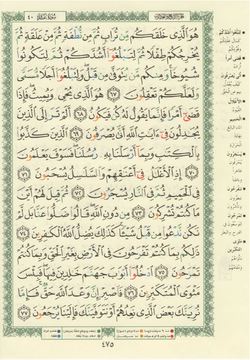 هُوَ ٱلَّذِى خَلَقَكُم مِّن تُرَابٍ ثُمَّ مِن نُّطْفَةٍ ثُمَّ مِنْ عَلَقَةٍ ثُمَّ
يُخْرِجُكُمْ طِفْلًا ثُمَّ لِتَبْلُغُوٓا۟ أَشُدَّكُمْ ثُمَّ لِتَكُونُوا۟
شُيُوخًا وَمِنكُم مَّن يُتَوَفَّىٰ مِن قَبْلُ وَلِتَبْلُغُوٓا۟ أَجَلًا مُّسَمًّى
وَلَعَلَّكُمْ تَعْقِلُونَ ٦٧ هُوَ ٱلَّذِى يُحْىِۦ وَيُمِيتُ فَإِذَا
قَضَىٰٓ أَمْرًا فَإِنَّمَا يَقُولُ لَهُۥ كُن فَيَكُونُ ٦٨ أَلَمْ تَرَ إِلَى ٱلَّذِينَ
يُجَٰدِلُونَ فِىٓ ءَايَٰتِ ٱللَّهِ أَنَّىٰ يُصْرَفُونَ ٦٩ ٱلَّذِينَ كَذَّبُوا۟
بِٱلْكِتَٰبِ وَبِمَآ أَرْسَلْنَا بِهِۦ رُسُلَنَا فَسَوْفَ يَعْلَمُونَ
٧٠ إِذِ ٱلْأَغْلَٰلُ فِىٓ أَعْنَٰقِهِمْ وَٱلسَّلَٰسِلُ يُسْحَبُونَ ٧١
فِى ٱلْحَمِيمِ ثُمَّ فِى ٱلنَّارِ يُسْجَرُونَ ٧٢ ثُمَّ قِيلَ لَهُمْ أَيْنَ
مَا كُنتُمْ تُشْرِكُونَ ٧٣ مِن دُونِ ٱللَّهِ قَالُوا۟ ضَلُّوا۟ عَنَّا بَل لَّمْ
نَكُن نَّدْعُوا۟ مِن قَبْلُ شَيْـًٔا كَذَٰلِكَ يُضِلُّ ٱللَّهُ ٱلْكَٰفِرِينَ ٧٤
ذَٰلِكُم بِمَا كُنتُمْ تَفْرَحُونَ فِى ٱلْأَرْضِ بِغَيْرِ ٱلْحَقِّ وَبِمَا كُنتُمْ
تَمْرَحُونَ ٧٥ ٱدْخُلُوٓا۟ أَبْوَٰبَ جَهَنَّمَ خَٰلِدِينَ فِيهَا فَبِئْسَ
مَثْوَى ٱلْمُتَكَبِّرِينَ ٧٦ فَٱصْبِرْ إِنَّ وَعْدَ ٱللَّهِ حَقٌّ فَإِمَّا
نُرِيَنَّكَ بَعْضَ ٱلَّذِى نَعِدُهُمْ أَوْ نَتَوَفَّيَنَّكَ فَإِلَيْنَا يُرْجَعُونَ ٧٧
٤٧٥